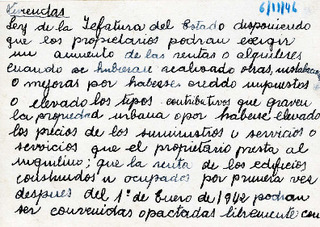 Viviendas 6/11/46
Ley de la Jefatura del Estado disponiendo
que los propietarios podran exigir
un aumento de las rentas o alquileres
cuando se hubieran realizado obras,
o mejoras por haberse creado impuestos
o elevado los tipos contributivos que graven
la propiedad urbana o por haberse elevado
los precios de los suministros o servicios o
servicios que el propietario presta al
inquilino; que la renta de los edificios
construidos u ocupados por primera vez
despues del 1º de Enero de 1942 podran
ser convenidas o pactadas libremente con